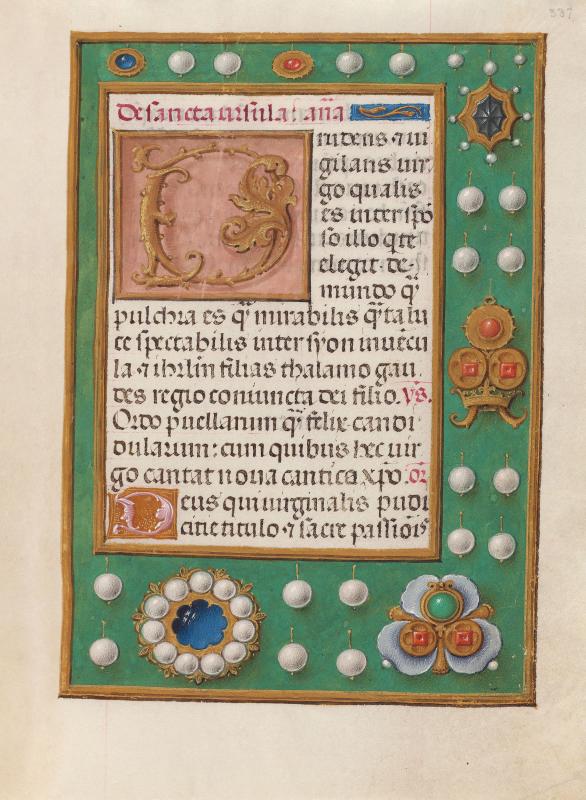 337
De sancta ursula: añа
O
rudens ⁊ ui
gilans uir
go qualis
es inter spō
so illo q̄ te
elegit. de
mundo q̄
pulchra es q̄ mirabilis q̄ talu
ce spectabilis inter syon iuuēcu
la ⁊ ihrl̄m filias thalamo gau
des regio coniuncta dei filio. v̄s.
Ordo puellarum q̄ felix candi
dularum: cum quibus hec uir
go cantat noua cantica xp̄o. or̄
Deus qui uirginalis pudi
citie titulo ⁊ sacre passiōis